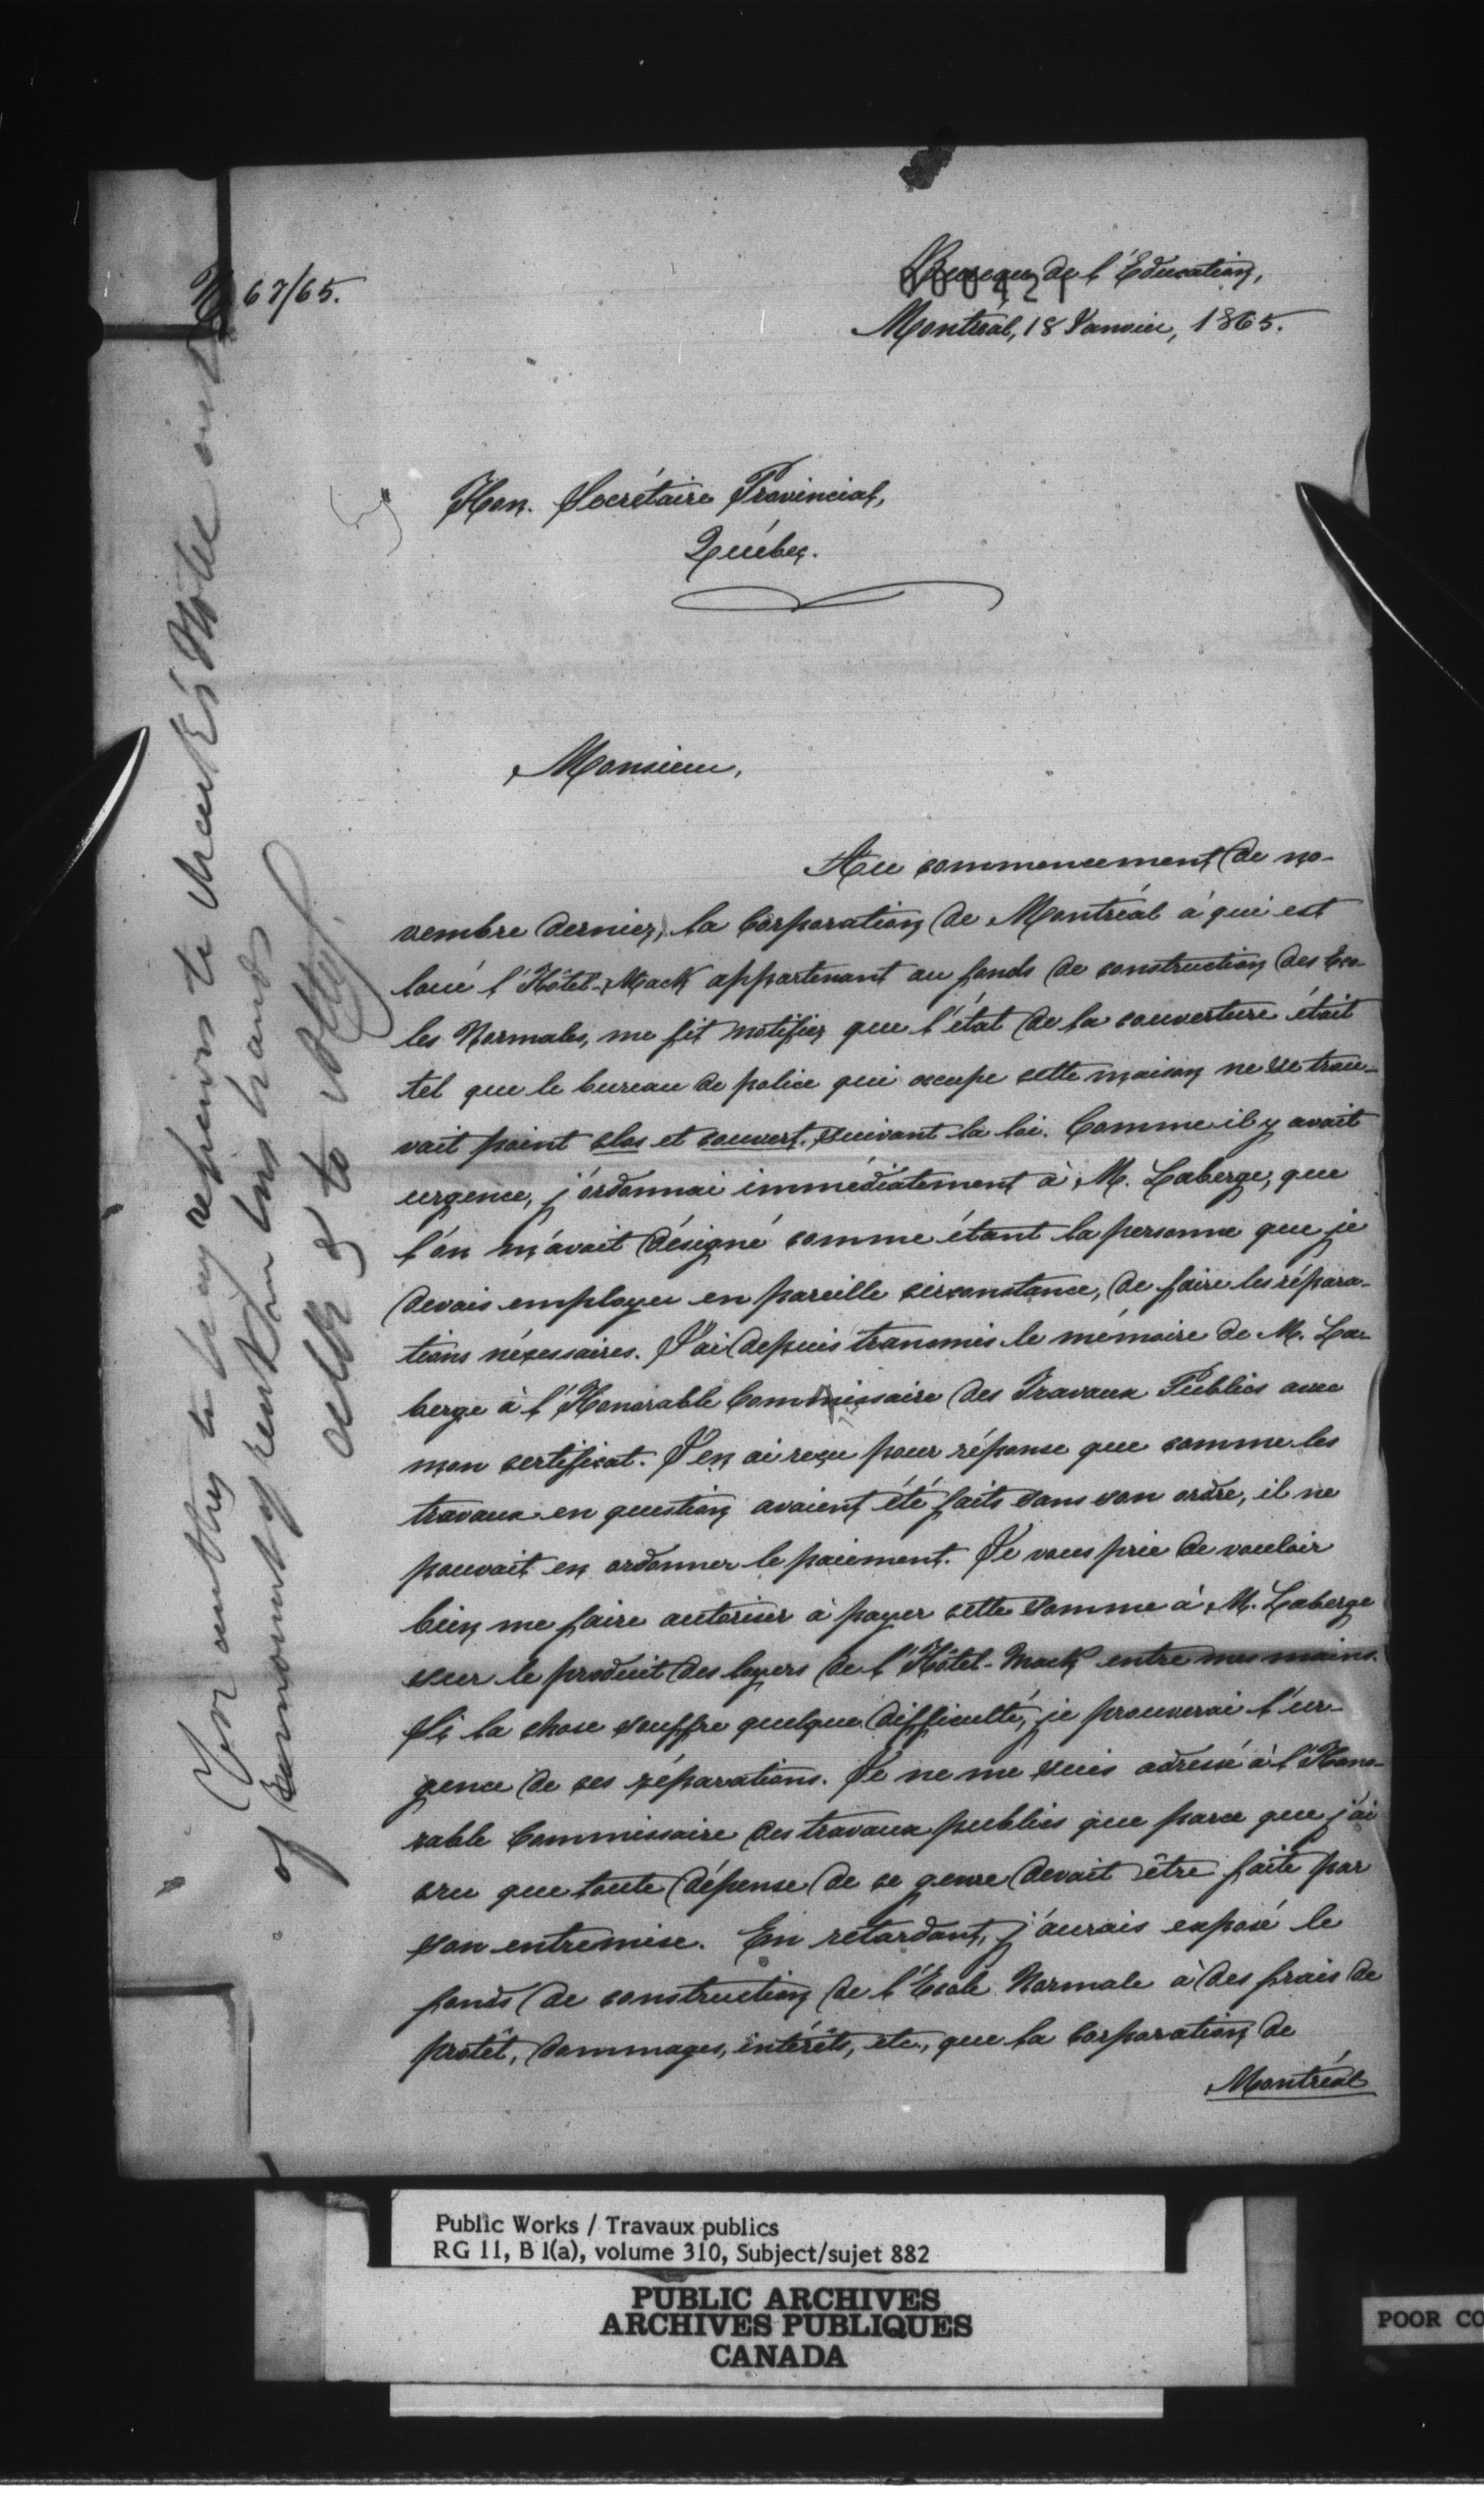 No 67/65.
000421
Bureau de l'Education,
Montréal, 18 Janvier, 1865.
Hon. Secrétaire Provincial,
Québec.
Monsieur,
Au commencement de no-
vembre dernier, la Corporation de Montréal à qui est
loué l'Hôtel-Mack appartenant au fonds de construction des Eco-
les Normales, me fit notifier que l'état de la couverture était
tel que le bureau de police qui occupe cette maison ne se trou-
vait point clos et couvert, suivant la loi. Comme il y avait
urgence, j'ordonnai immédiatement à M. Laberge, que
l'on m'avait désigné comme étant la personne que je
devais employer en pareille circonstance, de faire les répara-
tions nécessaires. J'ai depuis transmis le mémoire de M. La-
berge à l'Honorable Commissaire des Travaux Publics avec
mon certificat. J'en ai reçu pour réponse que comme les
travaux en question avaient été faits sans son ordre, il ne
pouvait en ordonner le paiement. Je vous prie de vouloir
bien me faire autoriser à payer cette somme à M. Laberge
sur le produit des loyers de l'Hôtel-Mack entre mes mains.
Si la chose souffre quelque difficulté, je prouverai l'ur-
gence de ces réparations. Je ne me suis adressé à l'Hono-
rable Commissaire des travaux publics que parce que j'ai
cru que toute dépense de ce genre devait être faite par
son entremise. En retardant, j'aurais exposé le
fonds de construction de l'Ecole Normale à des frais de
protêt, dommages, intérêts, etc., que la corporation de
Montréal
For authy to pay repairs to Mack's Hotel out
of amount of rent in his hands
Public Works / Travaux publics
RG 11, B 1(a), volume 310, Subject/sujet 882
PUBLIC ARCHIVES
ARCHIVES PUBLIQUES
CANADA
POOR CO